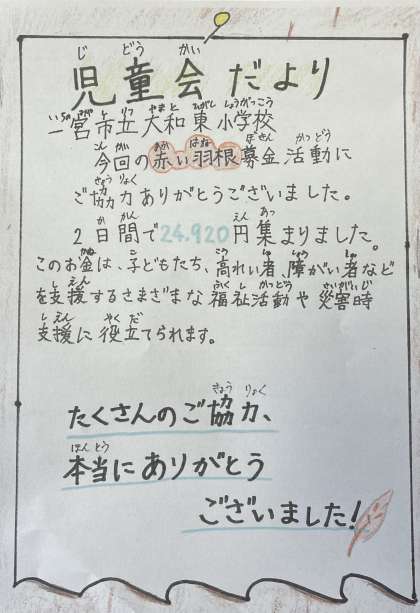 児童会だより
一宮市立大和東小学校
今回の赤い羽根募金活動に
ご協力ありがとうございました。
2日間で24,920円集まりました。
このお金は、子どもたち、高れい者、障がい者など
を支援するさまざまな福祉活動や災害時
支援に役立てられます。
たくさんのご協力、
本当にありがとう
ございました!